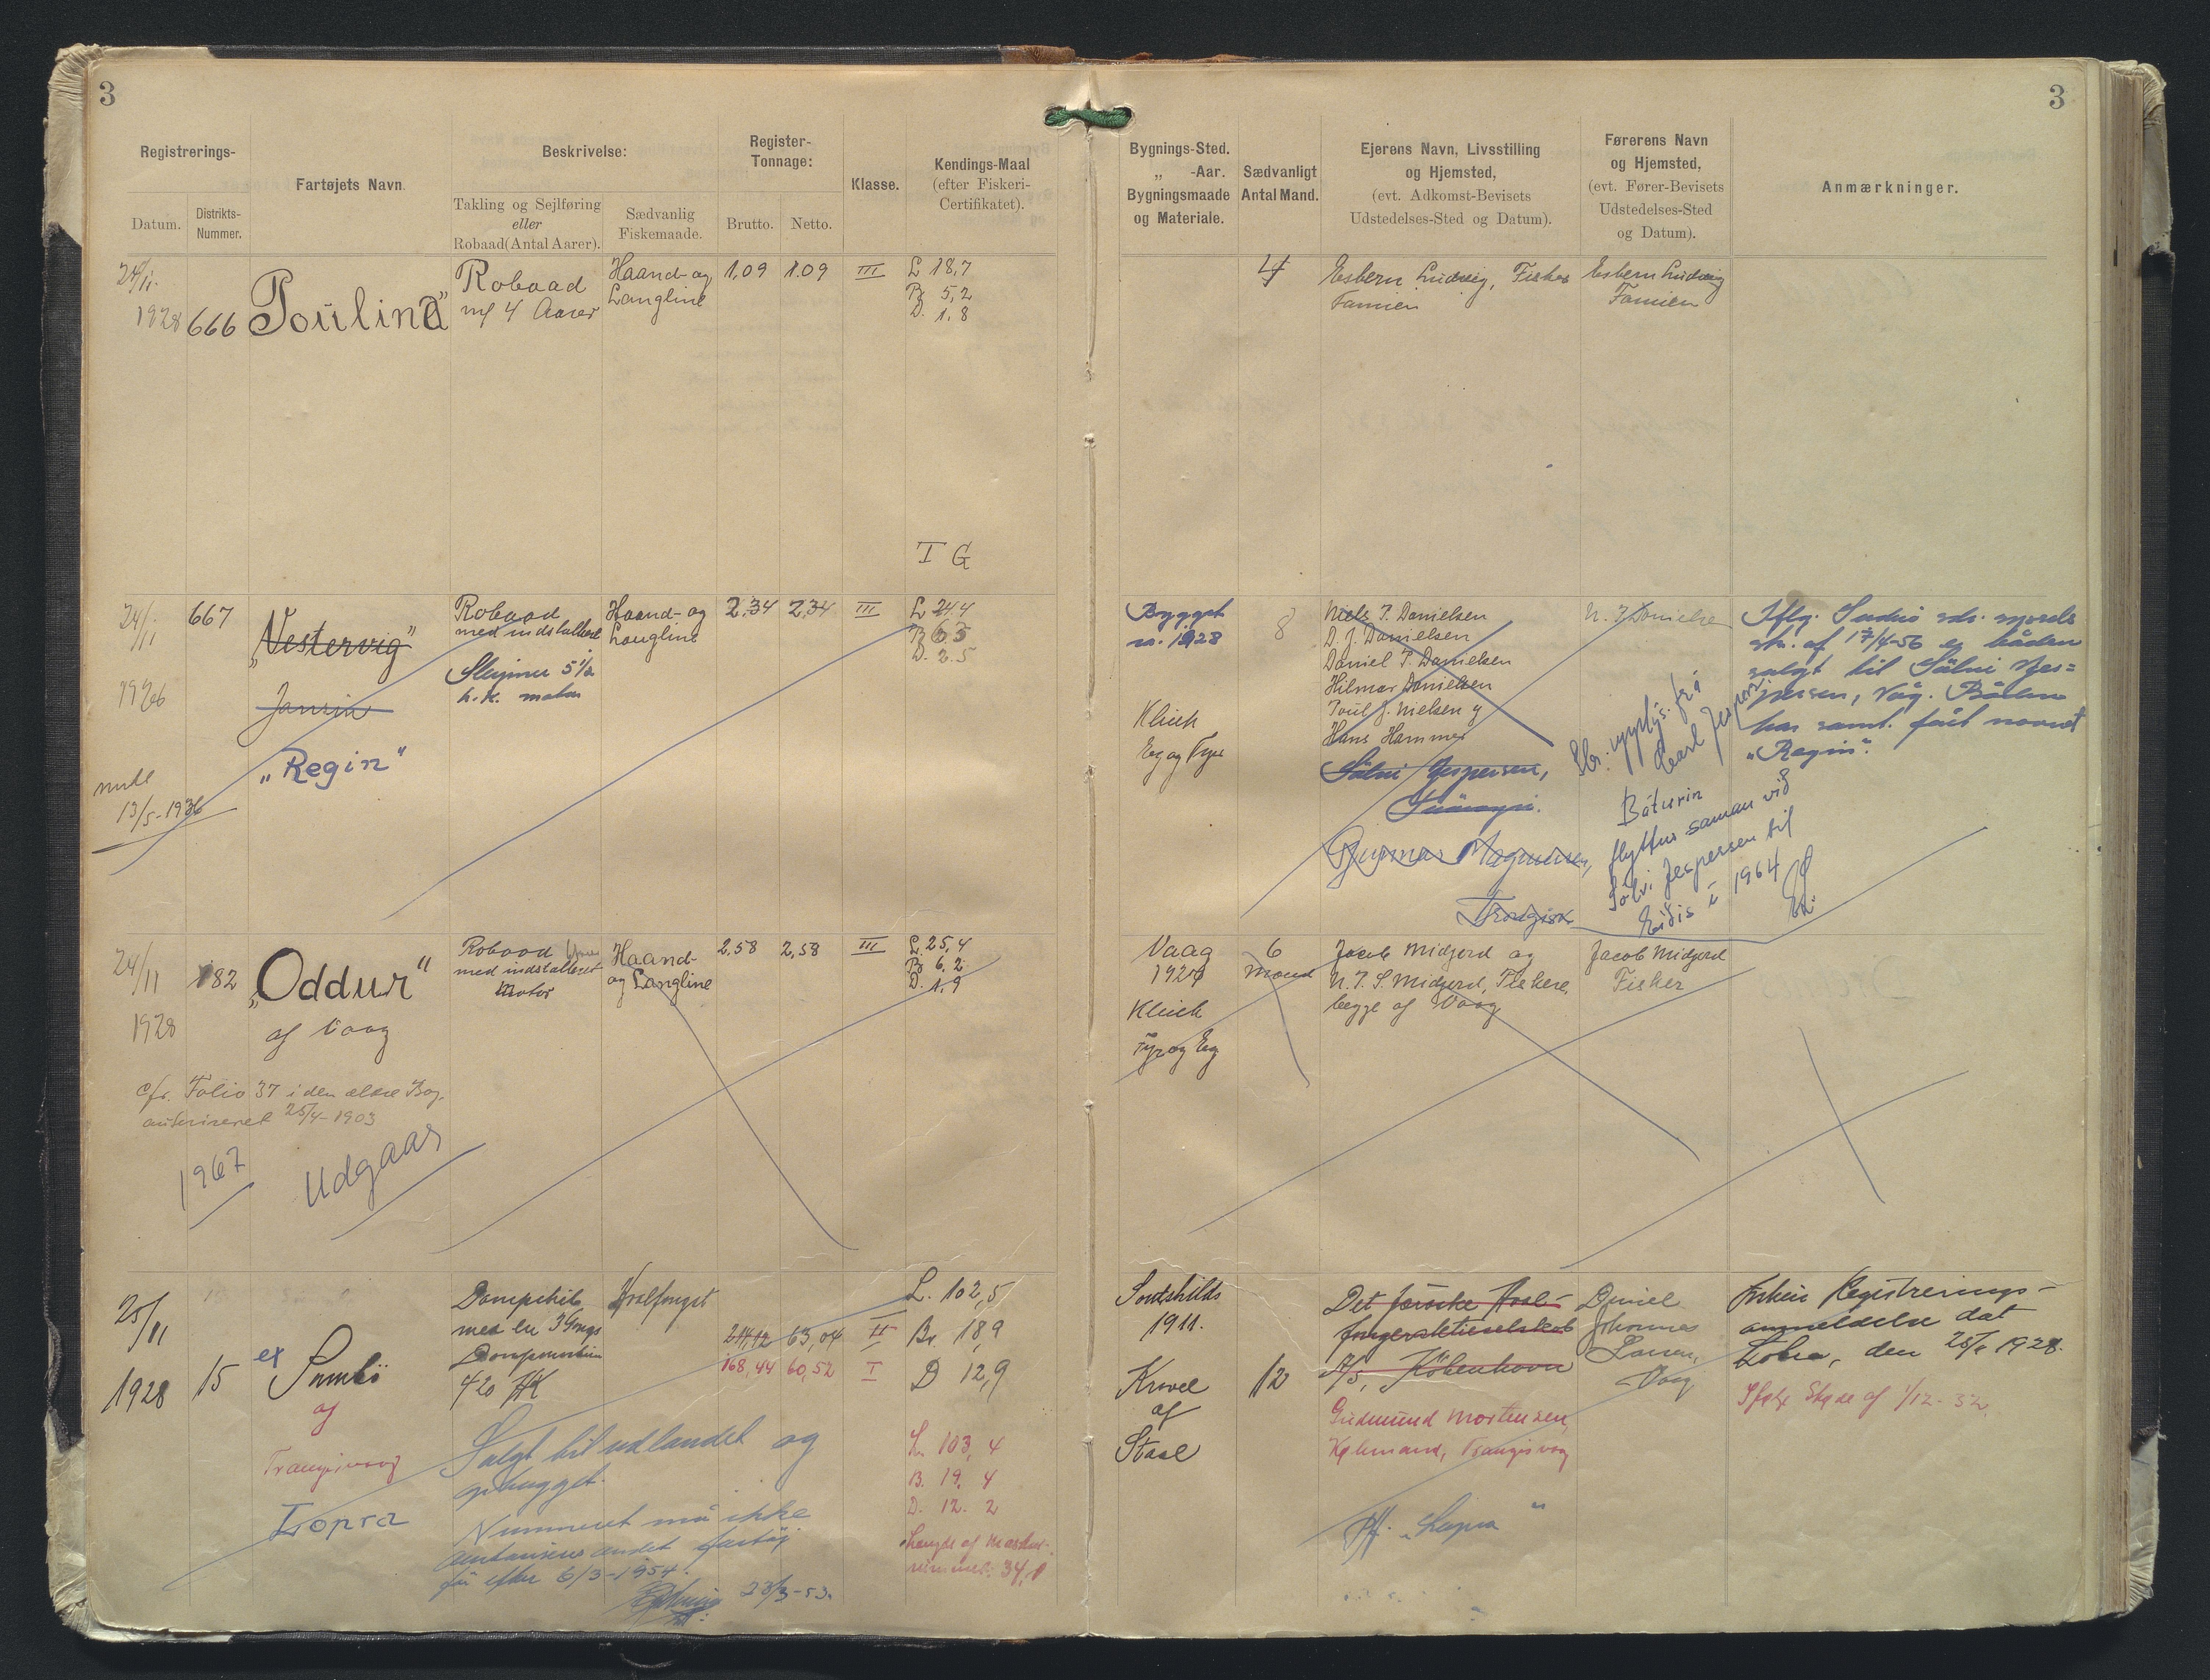 3
3
Registrerings-
Datum.
Distrikts-
Nummer.
Fartøjets Navn.
Beskrivelse:
Takling og Sejlføring
eller
Robaad (Antal Aarer).
Sædvanlig
Fiskemaade.
Register-
Tonnage:
Brutto.
Netto.
Klasse.
Kendings-Maal
(efter Fiskeri-
Certifikatet).
Bygnings-Sted.
„ -Aar.
Bygningsmaade
og Materiale.
Sædvanligt
Antal Mand.
Ejerens Navn, Livsstilling
og Hjemsted,
(evt. Adkomst-Bevisets
Udstedelses-Sted og Datum).
Førerens Navn
og Hjemsted,
(evt. Fører-Bevisets
Udstedelses-Sted
og Datum).
Anmærkninger.
24/11
1928
666
Poulina"
Robaad
m/ 4 Aarer
Haand- og
Langline
1,09
1,09
III
L 18,7
B 5,2
D. 1,8
4
Esbern Ludvig, Fisker
Famien
Esbern Ludvig
Famien
I G
24/11
667
„Vestervig"
„Regin"
13/5-1936
Robaad
med indstalleret
5 1/2
h.k. motor
Haand- og
Langline
2,34
2,34
III
L 24,4
B 6,5
D. 2.5
Bygget
1928
Klink
Eg og Fyr
8
Niels P. Danielsen
D. J. Danielsen
Daniel P. Danielsen
Hilmar Danielsen
Poul J. Nielsen og
Hans Hammer
Sölvi Jespersen,
Gunnar Magnussen,
N. P. Danielsen
Iflg. Suduø sds.
skr. af 17/4-56 er båden
solgt til Sölvi Jes=
persen, Våg. Båden
har samt. fået navnet
„Regin".
frá
Carl Jespersen
Báturin
flyttur saman við
Sölvi Jespersen til
Eiðis í 1964
24/11
1928
182
„Oddur"
af Vaag
Robaad
med indstalleret
Motor
Haand-
og Langline
2,58
2,58
III
L. 25,4
B 6,2
D. 1,9
Vaag
Klink
Fyr og Eg
6
Mand
Jacob Midjord og
N. P. S. Midjord, Fiskere,
begge af Vaag
Jacob Midjord
Fisker
cfr. Folio 37 i den ældre Bog,
autoriseret 25/4-1903
1967
Udgaar
25/11
1928
15
ex
Sumbö
af
Trangisvaag
Lopra
Dampskib
med en 3 Gangs
Dampmaskine
420 HK
Hvalfangst
211,12
63,04
II
168,44
60,52
I
L. 102,5
Br. 18,9
D 12,9
L. 103,4
B. 19,4
D. 12.2
Længde af Maskin-
rummet: 34,1
Salgt til udlandet og
ophugget.
Nummeret må ikke
andet fartøj
før efter 6/3-1954.
23/3-53.
1911.
Kravel
af
Staal
12
Det færöske Hval-
fangeraktieselskab
A/S, København
Gudmund Mortensen,
Købmand, Trangisvaag
Daniel
Johannes
Larsen,
Vaag
Registrerings-
anmeldelse dat
Lobra, den 1928.
Ifølge Skøde af 1/12-32.